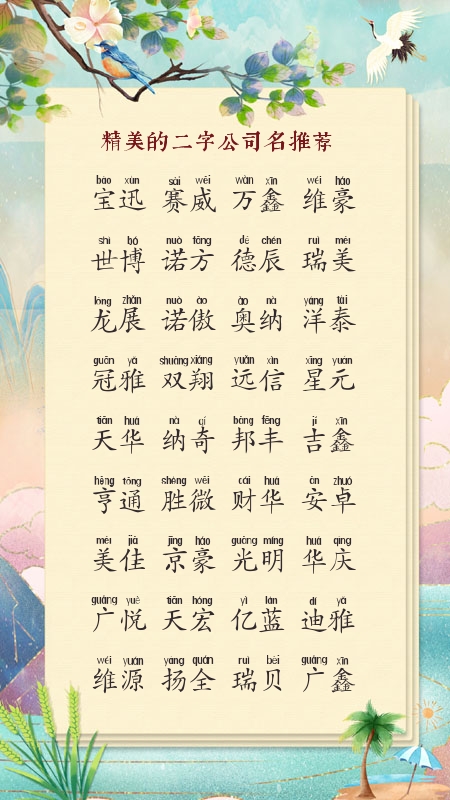 精美的二字公司名推荐
bǎo xùn sài wēi wàn xīn wéi háo
宝迅 赛威 万鑫 维豪
shì bó nuò fāng dé chén ruì měi
世博 诺方 德辰 瑞美
lóng zhǎn nuò ào ào nà yáng tài
龙展 诺傲 奥纳 洋泰
guān yǎ shuāng xiáng yuǎn xìn xīng yuán
冠雅 双翔 远信 星元
tiān huá nà qí bāng fēng jí xīn
天华 纳奇 邦丰 吉鑫
hēng tōng shèng wēi cái huá ān zhuó
亨通 胜微 财华 安卓
měi jiā jīng háo guāng míng huá qìng
美佳 京豪 光明 华庆
guǎng yuè tiān hóng yì lán dí yǎ
广悦 天宏 亿蓝 迪雅
wéi yuán yáng quán ruì bèi guǎng xīn
维源 扬全 瑞贝 广鑫